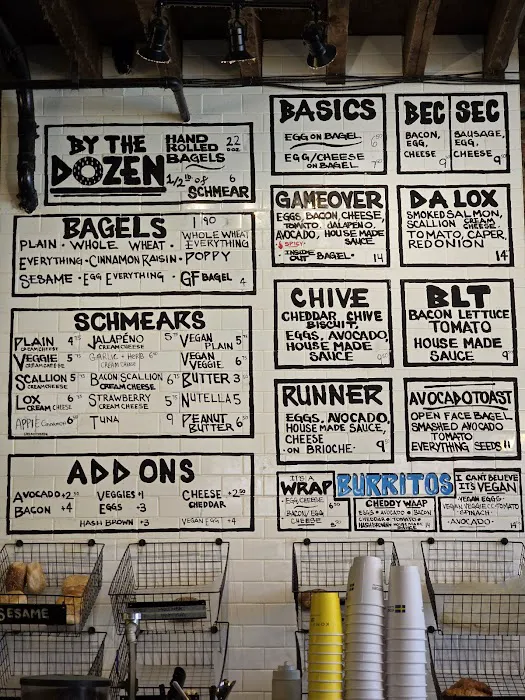 BY THE DOZEN
HAND ROLLED BAGELS 22
DOZ
1/2 lb of SCHMEAR 6
BAGELS 1 90
PLAIN · WHOLE WHEAT · WHOLE WHEAT EVERYTHING
EVERYTHING · CINNAMON RAISIN · POPPY
SESAME · EGG EVERYTHING · GF BAGEL 4
SCHMEARS
PLAIN CREAM CHEESE 4
JALAPEÑO CREAM CHEESE 5
VEGAN PLAIN 5
VEGGIE CREAM CHEESE 5
GARLIC + HERB CREAM CHEESE 6
VEGAN VEGGIE 6
SCALLION CREAM CHEESE 5
BACON SCALLION CREAM CHEESE 6
BUTTER 3
LOX CREAM CHEESE 6
STRAWBERRY CREAM CHEESE 5
NUTELLA 5
APPLE Cinnamon 6
TUNA 9
PEANUT BUTTER 6
ADD ONS
AVOCADO +2
VEGGIES +1
CHEESE +2
BACON +4
EGGS +3
CHEDDAR
HASH BROWN +3
VEGAN EGG +4
BASICS
EGG ON BAGEL 6
EGG/CHEESE ON BAGEL 7
BEC
BACON, EGG, CHEESE 9
SEC
SAUSAGE, EGG, CHEESE 9
GAMEOVER
EGGS, BACON, CHEESE,
TOMATO, JALAPEÑO,
AVOCADO, HOUSE MADE
SPICY SAUCE
· INSIDE OUT BAGEL · 14
DA LOX
SMOKED SALMON,
SCALLION CREAM CHEESE,
TOMATO, CAPER,
RED ONION
14
CHIVE
CHEDDAR CHIVE
BISCUIT,
EGGS, AVOCADO,
HOUSE MADE
SAUCE 9
BLT
BACON LETTUCE
TOMATO
HOUSE MADE
SAUCE 9
RUNNER
EGGS, AVOCADO,
HOUSE MADE SAUCE,
CHEESE
· ON BRIOCHE · 9
AVOCADO TOAST
OPEN FACE BAGEL
SMASHED AVOCADO
TOMATO
EVERYTHING SEEDS 11
IT'S A WRAP
EGG CHEESE 6
BACON/EGG CHEESE 8
BURRITOS
CHEDDY WRAP
EGGS · AVOCADO · BACON
CHEDDAR · TOMATO ·
HASHBROWN HOUSE MADE SAUCE 14
I CAN'T BELIEVE IT'S VEGAN
· VEGAN EGGS ·
VEGAN VEGGIE CC TOMATO
· SPINACH ·
· AVOCADO · 14
SESAME